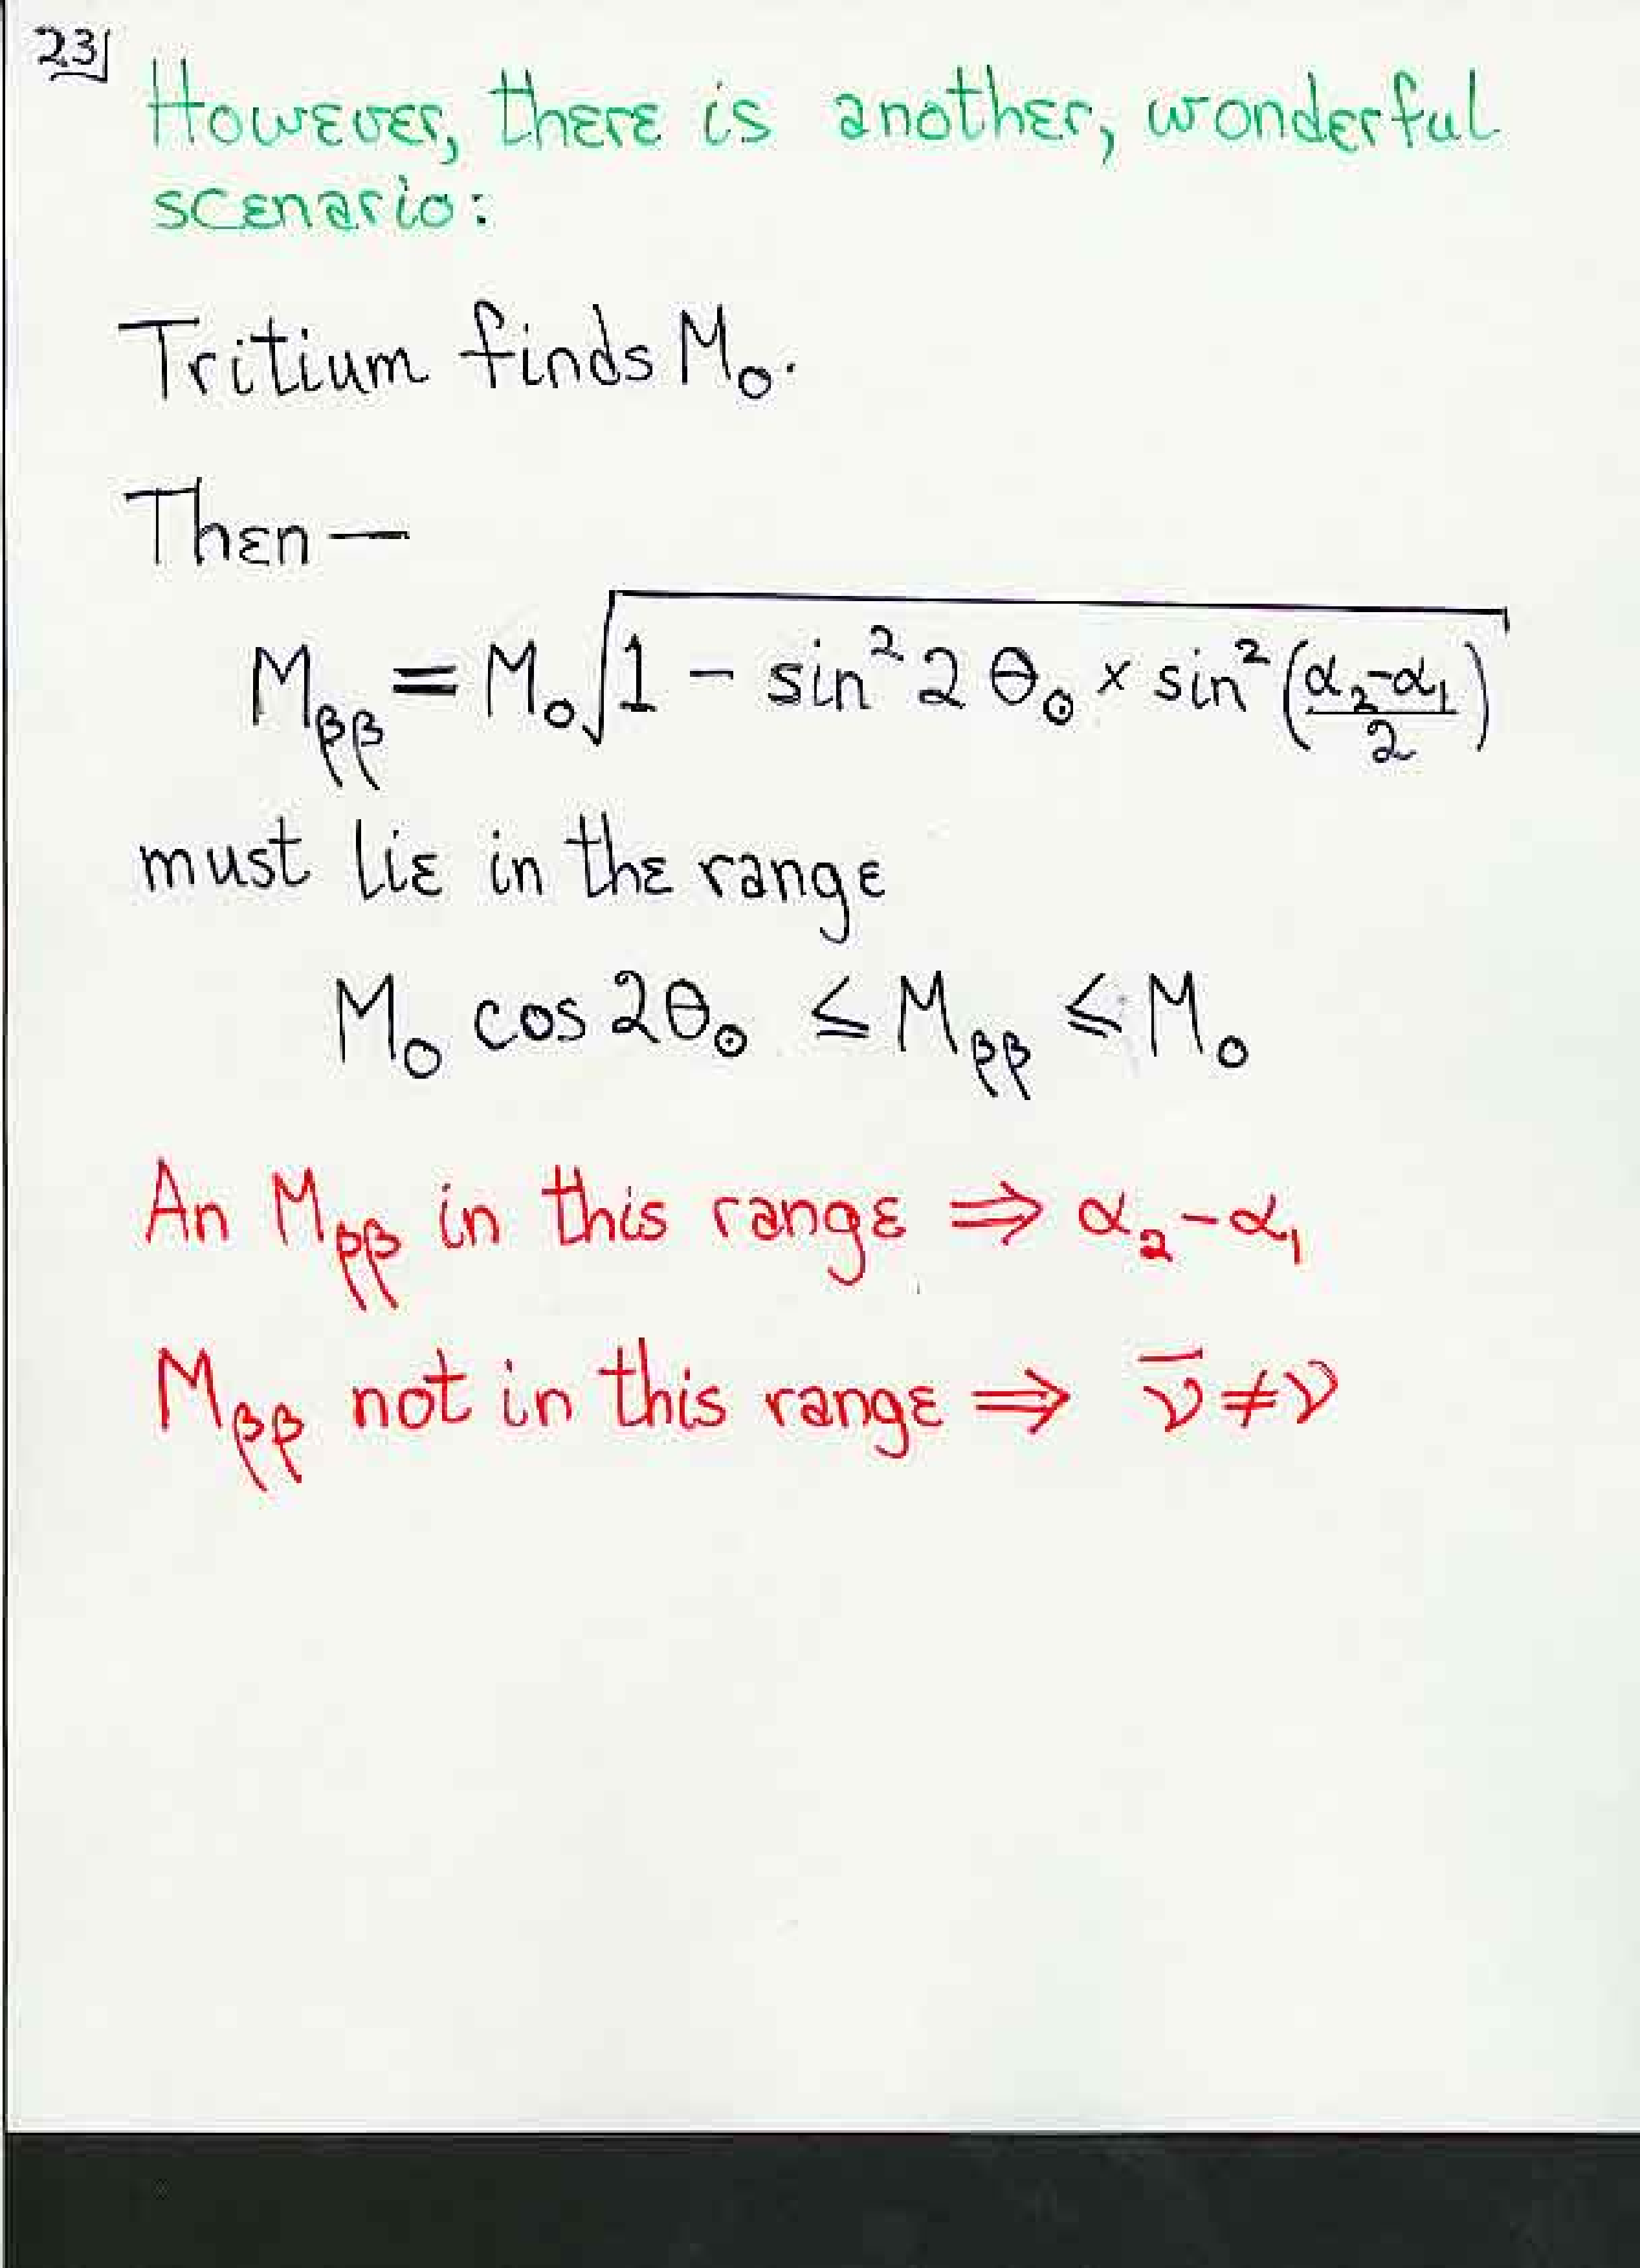 23
However, there is another, wonderful
scenario:
Tritium finds M₀.
Then —
M_ββ = M₀√(1 - sin² 2θ_⊙ × sin²((α₂-α₁)/2))
must lie in the range
M₀ cos 2θ_⊙ ≤ M_ββ ≤ M₀
An M_ββ in this range ⇒ α₂-α₁
M_ββ not in this range ⇒ ν̄ ≠ ν